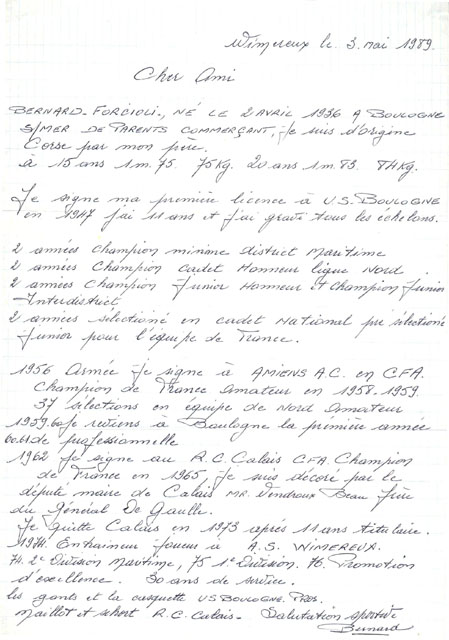 Wimereux le 3 mai 1989.
Cher Ami
BERNARD-FORCIOLI, NÉ LE 2 AVRIL 1936 A BOULOGNE
S/MER DE PARENTS COMMERÇANT, Je suis d'origine
Corse par mon père.
à 15 ans 1m.75. 75Kg. 20 ans 1m.83. 84Kg.
Je signe ma première licence à U.S. BOULOGNE
en 1947 j'ai 11 ans et j'ai gravi tous les échelons.
2 années Champion minime District Maritime
2 années Champion Cadet Honneur ligue Nord.
2 années Champion Junior Honneur et Champion Junior
Interdistrict
2 années sélectioné en cadet National pré sélectioné
Junior pour l'équipe de France.
1956 Armée je signe à AMIENS A.C. en CFA.
Champion de France Amateur en 1958-1959.
37 sélections en équipe de Nord Amateur
1959.60 Je reviens à Boulogne la première année
60.61 de professionnelle
1962 Je signe au R.C. Calais CFA. Champion
de France en 1965, Je suis décoré par le
député maire de Calais MR. Vendroux Beau frère
du Général De Gaulle.
Je quitte Calais en 1973 après 11 ans titulaire.
1974. Entraineur joueur à A.S. WIMEREUX.
74. 2e Division Maritime, 75 1e Division. 76. Promotion
d'excellence. 30 ans de service.
les gants et la casquette US BOULOGNE.
Maillot et schort R.C. Calais. Salutation sportive
Bernard